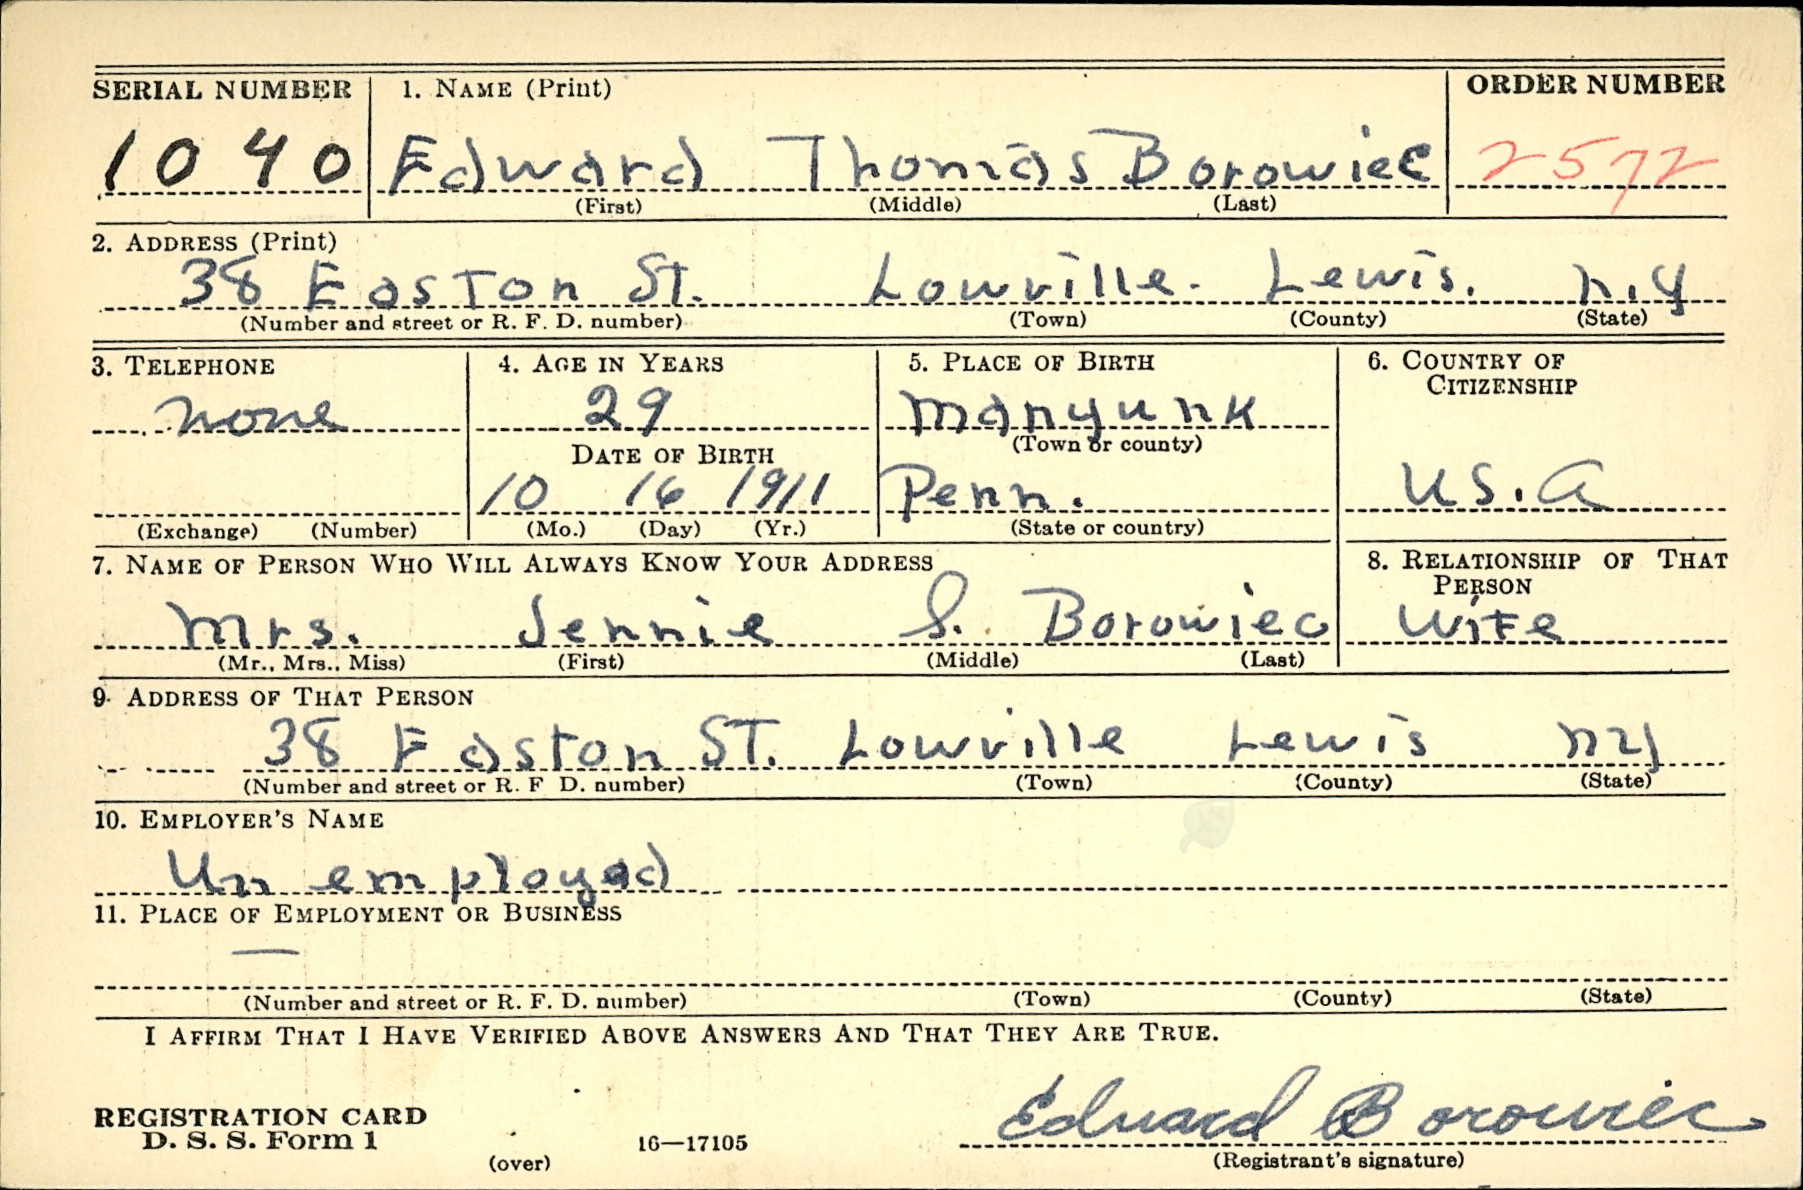 SERIAL NUMBER 1. NAME (Print) ORDER NUMBER
1040 Edward Thomas Borowiec 2572
(First) (Middle) (Last)
2. ADDRESS (Print)
38 Easton St. Lowville. Lewis. N.Y
(Number and street or R. F. D. number) (Town) (County) (State)
3. TELEPHONE 4. AGE IN YEARS 5. PLACE OF BIRTH 6. COUNTRY OF CITIZENSHIP
none 29 Manyunk
(Town or county)
DATE OF BIRTH
10 16 1911 Penn. U.S.A
(Exchange) (Number) (Mo.) (Day) (Yr.) (State or country)
7. NAME OF PERSON WHO WILL ALWAYS KNOW YOUR ADDRESS 8. RELATIONSHIP OF THAT PERSON
Mrs. Jennie S. Borowiec Wife
(Mr., Mrs., Miss) (First) (Middle) (Last)
9. ADDRESS OF THAT PERSON
38 Easton ST. Lowville Lewis NY
(Number and street or R. F. D. number) (Town) (County) (State)
10. EMPLOYER'S NAME
Un employed
11. PLACE OF EMPLOYMENT OR BUSINESS
—
(Number and street or R. F. D. number) (Town) (County) (State)
I AFFIRM THAT I HAVE VERIFIED ABOVE ANSWERS AND THAT THEY ARE TRUE.
Edward Borowiec
REGISTRATION CARD
D. S. S. Form 1 16—17105
(over) (Registrant's signature)